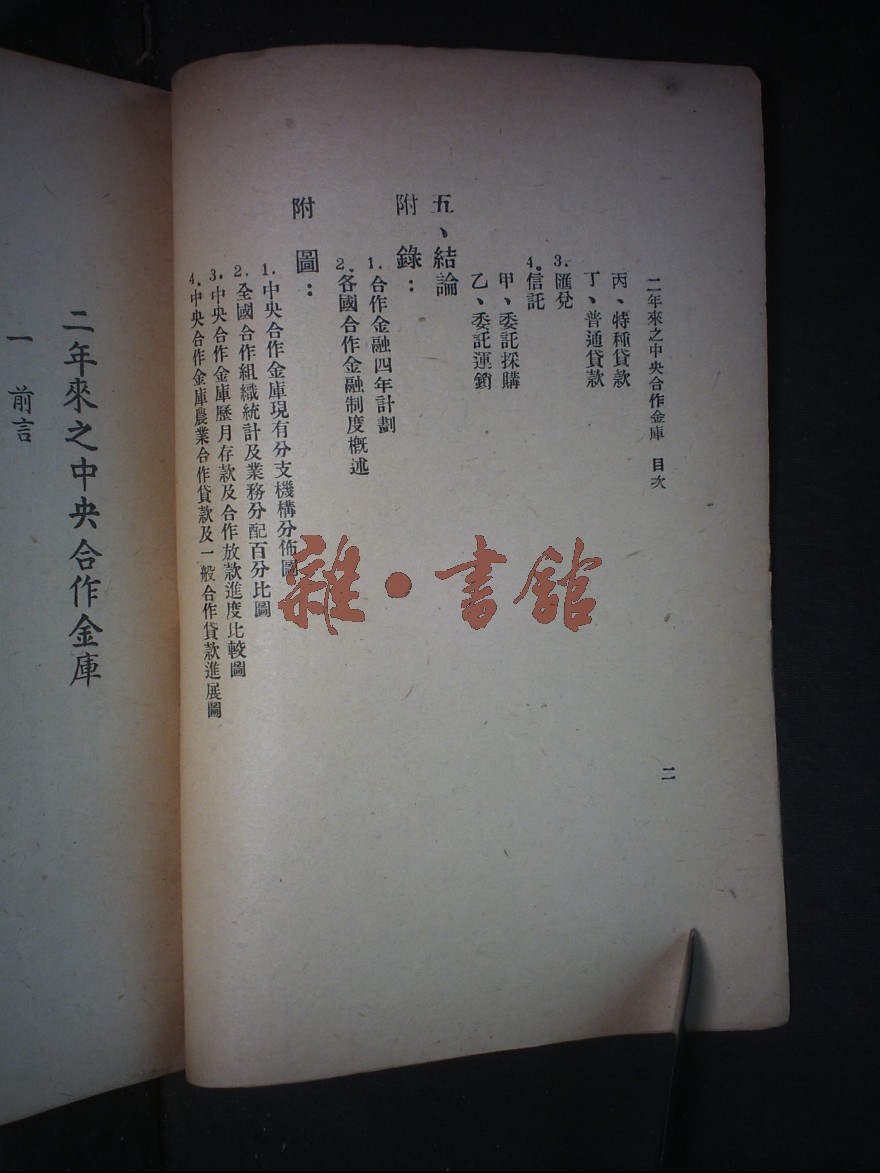 二年來之中央合作金庫　目次
二
丙、特種貸款
丁、普通貸款
3.匯兌
4.信託
甲、委託採購
乙、委託運銷
五、結論
附　錄：
1.合作金融四年計劃
2.各國合作金融制度概述
附　圖：
1.中央合作金庫現有分支機構分佈圖
2.全國合作組織統計及業務分配百分比圖
3.中央合作金庫歷月存款及合作放款進度比較圖
4.中央合作金庫農業合作貸款及一般合作貸款進展圖
二年來之中央合作金庫
一　前言
雜·書館